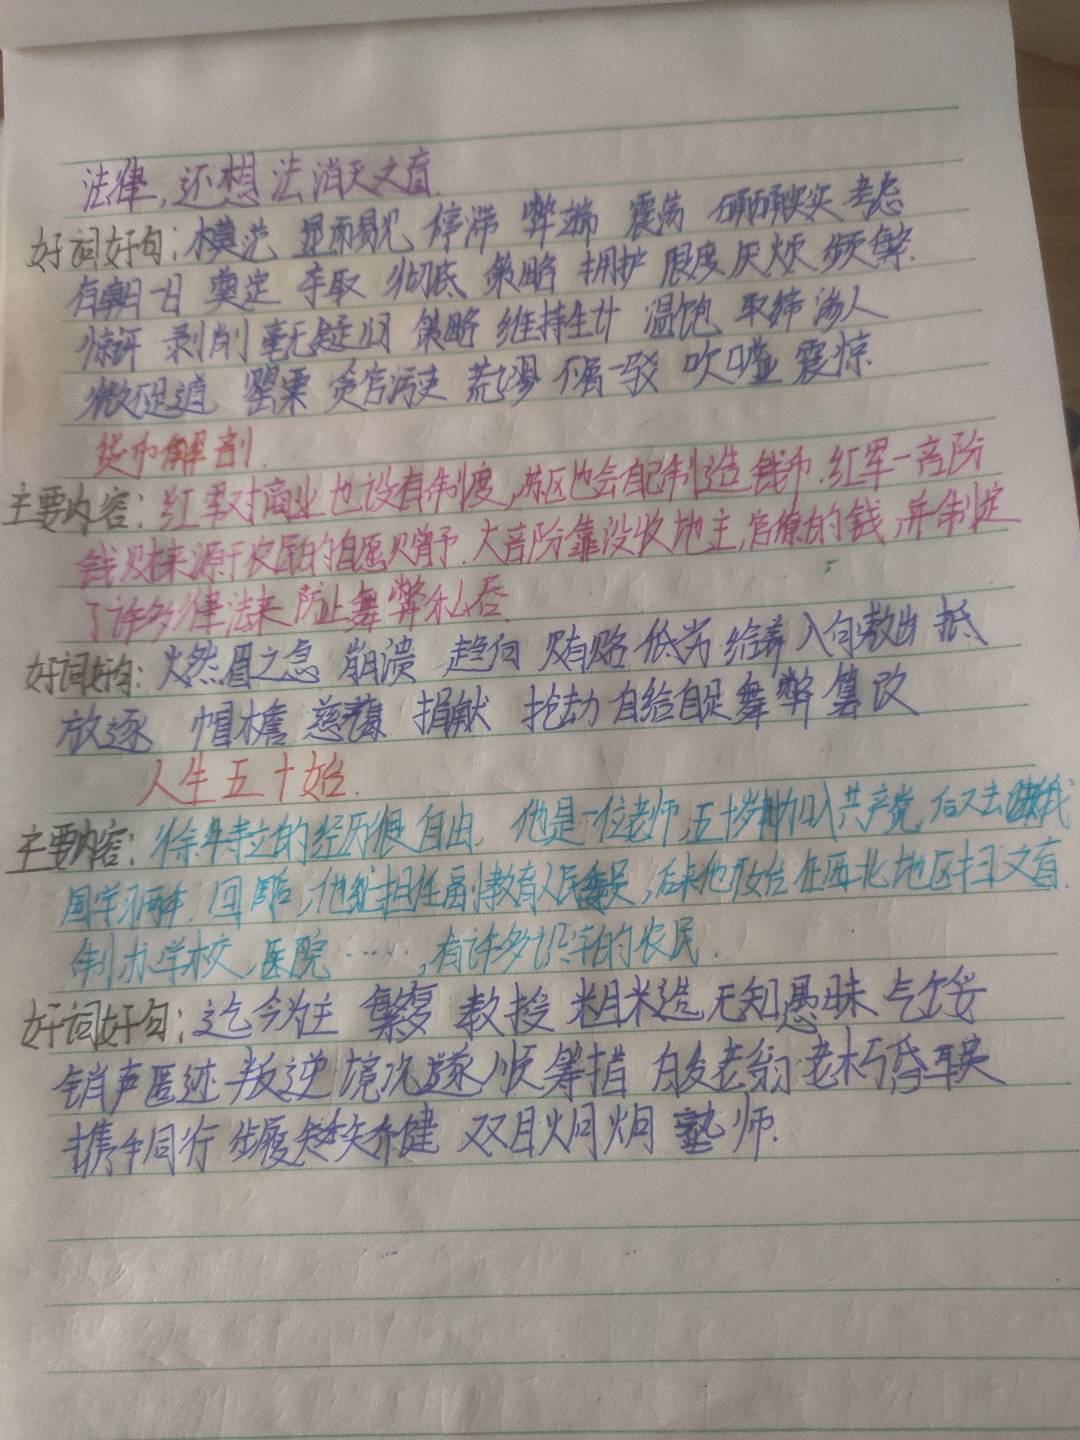 法律,还想法消灭文盲.
好词好句:模范 显而易见 停滞 弊端 震荡 确确实实 考虑
有朝一日 奠定 夺取 彻底 策略 拥护 限度 厌烦 频繁.
惊讶 剥削 毫无疑问 策略 维持生计 温饱 取缔
微不足道 罂粟 贪官污吏 荒谬 不屑一驳 吹嘘 震惊.
货币解剖.
主要内容:红军对商业也设有制度,苏区也会自己制造钱币.红军一部阶
钱财来源于农民的自愿赠予.大部阶靠没收地主,官僚的钱,并制定
了许多律法来防止舞弊私吞.
好词好句:燃眉之急 崩溃 趋向 贿赂 低劣 给养 入句 抵
放逐 帽檐 慈善 捐献 抢劫 自给自足 舞弊 篡改
人生五十始.
主要内容:徐特立的经历很自由. 他是一位老师,五十岁加入共产党 后又去俄
国学习两年.回国后,他担任副教育人民委员,后来他开始在西北地区扫文盲.
制办学校,医院……,有许多识字的农民.
好词好句:迄今为止 繁复 教授 粗糙 无知愚昧 气馁
销声匿迹 叛逆 境况 逐 顺 筹措 白发老翁 老朽昏聩
携手同行 步履矫健 双目炯炯 塾师.